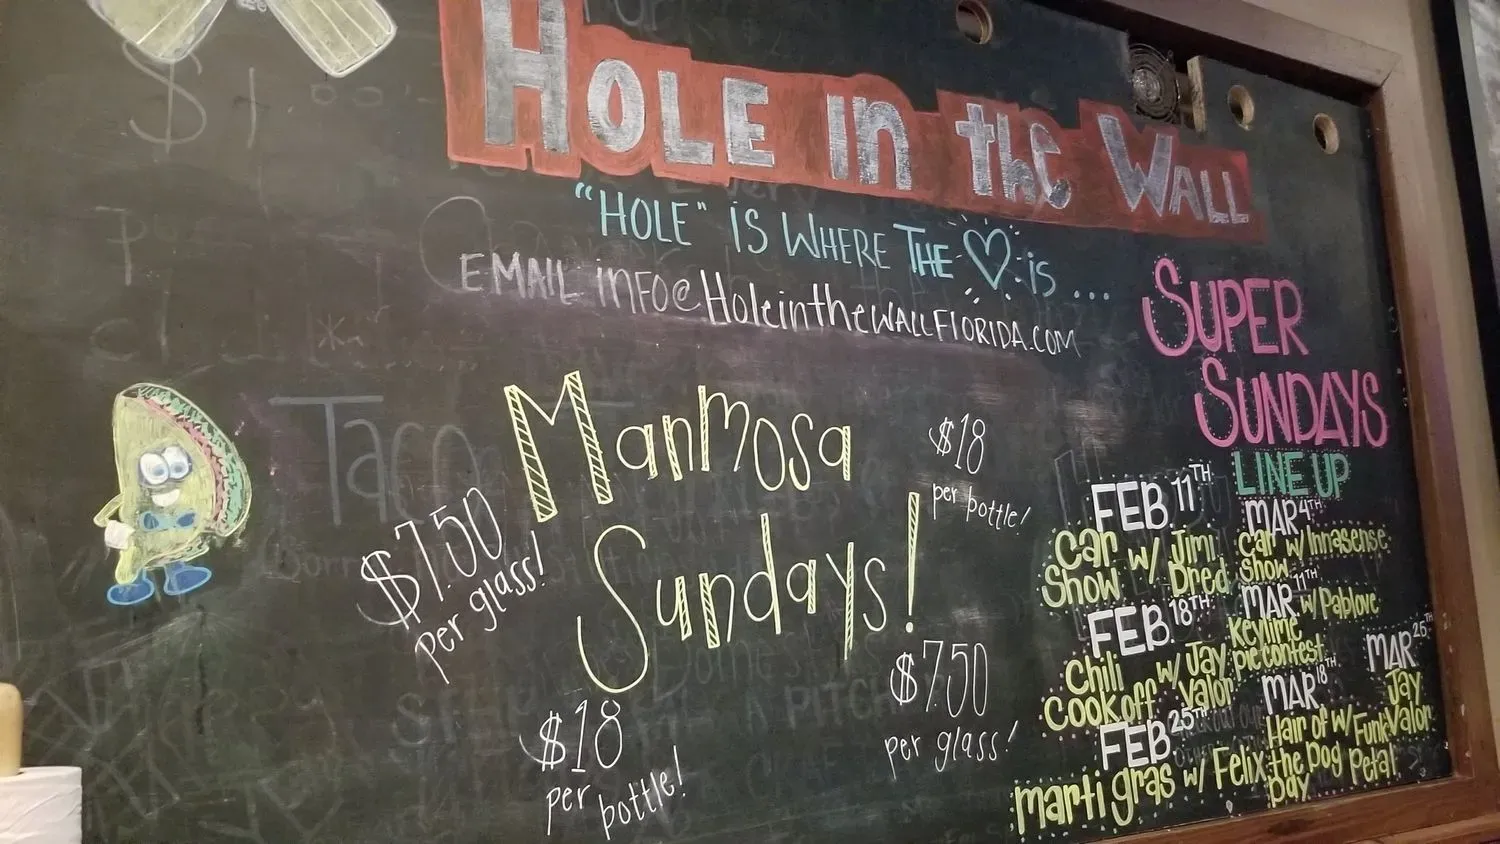 HOLE in the WALL
"HOLE" iS WHERE THE ♡ is ...
EMAIL inFO@HoleintheWALLFLORIDA.COM
Manmosa
Sundays!
$7.50
per glass!
$18
per bottle!
$18
per bottle!
$7.50
per glass!
SUPER
SUNDAYS
LINE UP
FEB 11TH
Car Show w/ Jimi Dred
FEB 18TH
Chili Cookoff w/ Jay Valor
FEB 25TH
marti gras w/ Felix
MAR 4TH
Car Show w/ Innasense
MAR 11TH w/ Pablove
Keylime pie contest
MAR 18TH
Hair of the Dog Day w/ Funk Petal
MAR 25TH
Jay Valor
Taco
$1.00